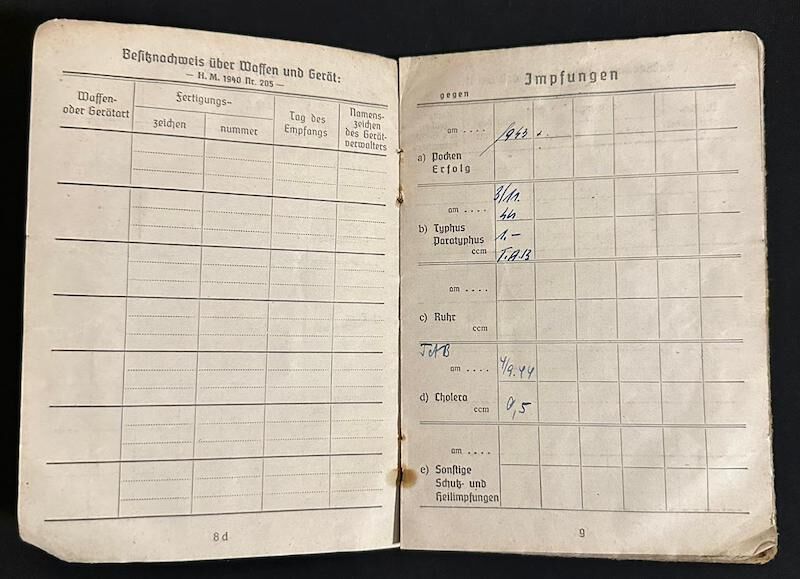 Besitznachweis über Waffen und Gerät:
— H. M. 1940 Nr. 205 —
Waffen-
oder Gerätart
Fertigungs-
zeichen
nummer
Tag des
Empfangs
Namens-
zeichen
des Gerät-
verwalters
8 d
Impfungen
gegen
am . . . . 1943
a) Pocken
Erfolg
3/11.
am . . . . 44
b) Typhus
Paratyphus 1.—
ccm T.A.B
am . . . .
c) Ruhr
ccm
TAB
am . . . . 4/9.44
d) Cholera
ccm 0,5
am . . . .
e) Sonstige
Schutz- und
Heilimpfungen
9